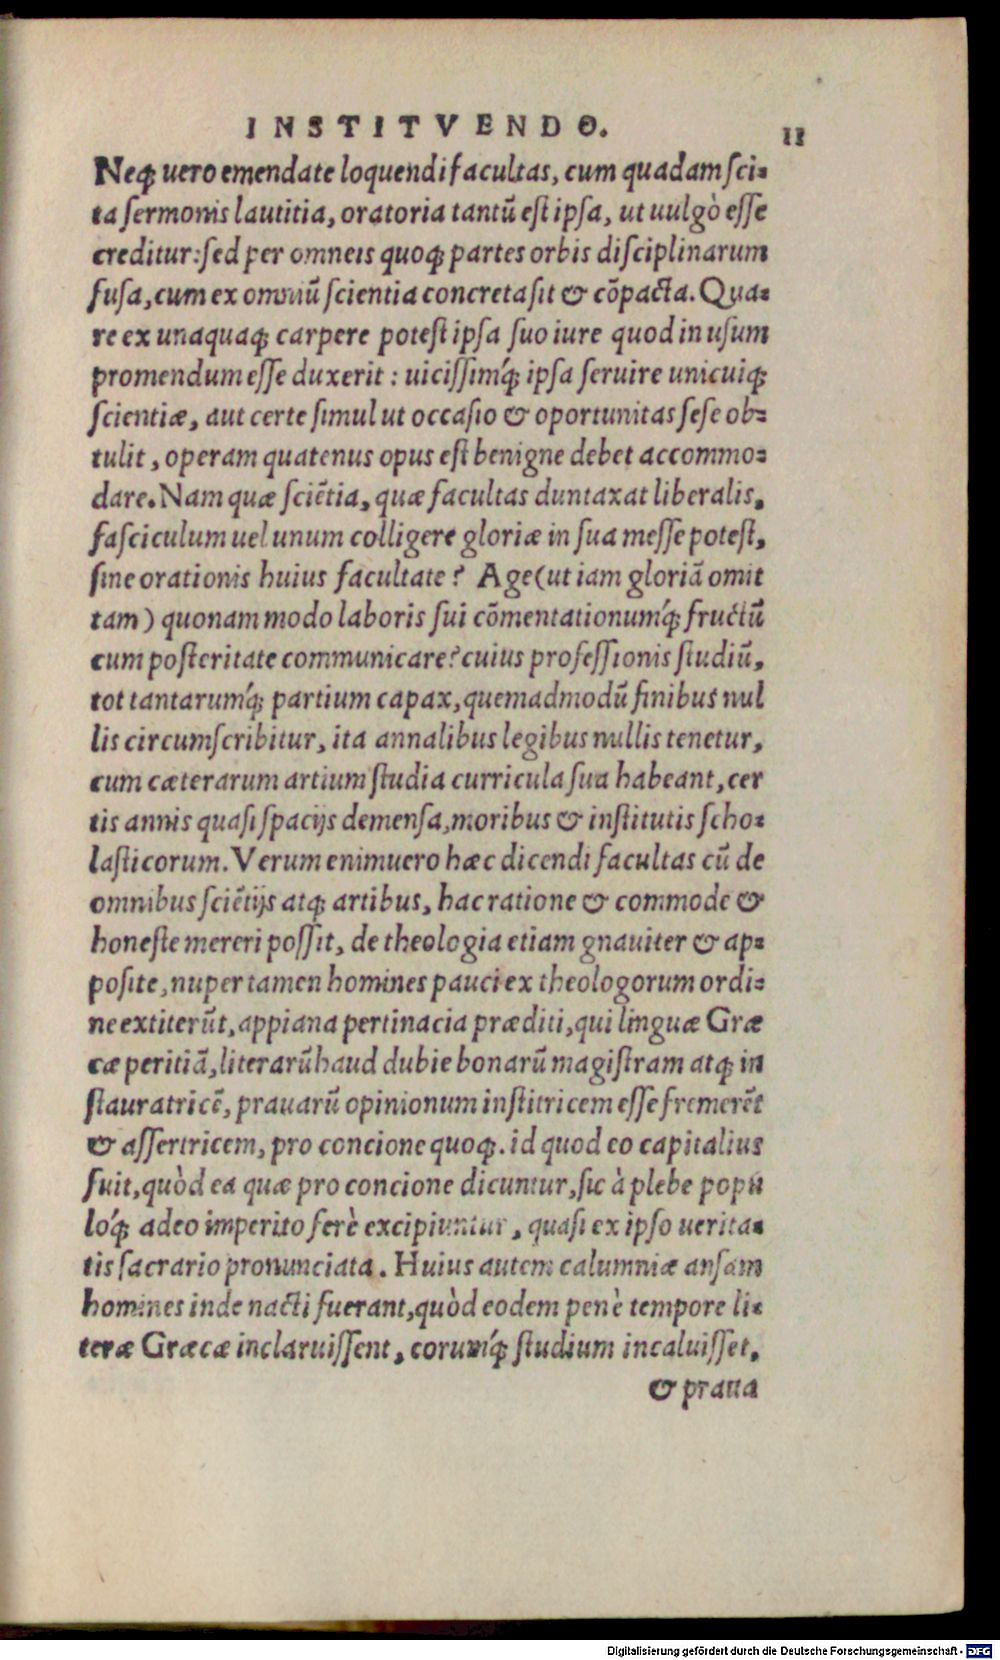 INSTITVENDO. 11
Neqꝫ uero emendate loquendi facultas, cum quadam ſci⸗
ta ſermonis lautitia, oratoria tantū eſt ipſa, ut uulgò eſſe
creditur: ſed per omneis quoqꝫ partes orbis diſciplinarum
fuſa, cum ex omniū ſcientia concreta ſit & cōpacta. Qua⸗
re ex unaquaqꝫ carpere poteſt ipſa ſuo iure quod in uſum
promendum eſſe duxerit : uiciſſimq́ꝫ ipſa ſeruire unicuiqꝫ
ſcientiæ, aut certe ſimul ut occaſio & oportunitas ſeſe ob⸗
tulit, operam quatenus opus eſt benigne debet accommo⸗
dare. Nam quæ ſciētia, quæ facultas duntaxat liberalis,
faſciculum uel unum colligere gloriæ in ſua meſſe poteſt,
ſine orationis huius facultate? Age (ut iam gloriā omit
tam) quonam modo laboris ſui cōmentationumq́ꝫ fructū
cum poſteritate communicare? cuius profeſſionis ſtudiū,
tot tantarumq́ꝫ partium capax, quemadmodū finibus nul
lis circumſcribitur, ita annalibus legibus nullis tenetur,
cum cæterarum artium ſtudia curricula ſua habeant, cer
tis annis quaſi ſpacijs demenſa, moribus & inſtitutis ſcho⸗
laſticorum. Verum enimuero hæc dicendi facultas cū de
omnibus ſciētijs atqꝫ artibus, hac ratione & commode &
honeſte mereri poſſit, de theologia etiam gnauiter & ap⸗
poſite, nuper tamen homines pauci ex theologorum ordi⸗
ne extiterūt, appiana pertinacia præditi, qui linguæ Græ
cæ peritiā, literarū haud dubie bonarū magiſtram atqꝫ in
ſtauratricē, prauarū opinionum inſtitricem eſſe fremerēt
& aſſertricem, pro concione quoqꝫ. id quod eo capitalius
fuit, quòd ea quæ pro concione dicuntur, ſic à plebe popu
loq́ꝫ adeo imperito ferè excipiuntur, quaſi ex ipſo uerita⸗
tis ſacrario pronunciata. Huius autem calumniæ anſam
homines inde nacti fuerant, quòd eodem penè tempore li⸗
teræ Græcæ inclaruiſſent, eorumq́ꝫ ſtudium incaluiſſet,
& praua
Digitalisierung gefördert durch die Deutsche Forschungsgemeinschaft - DFG